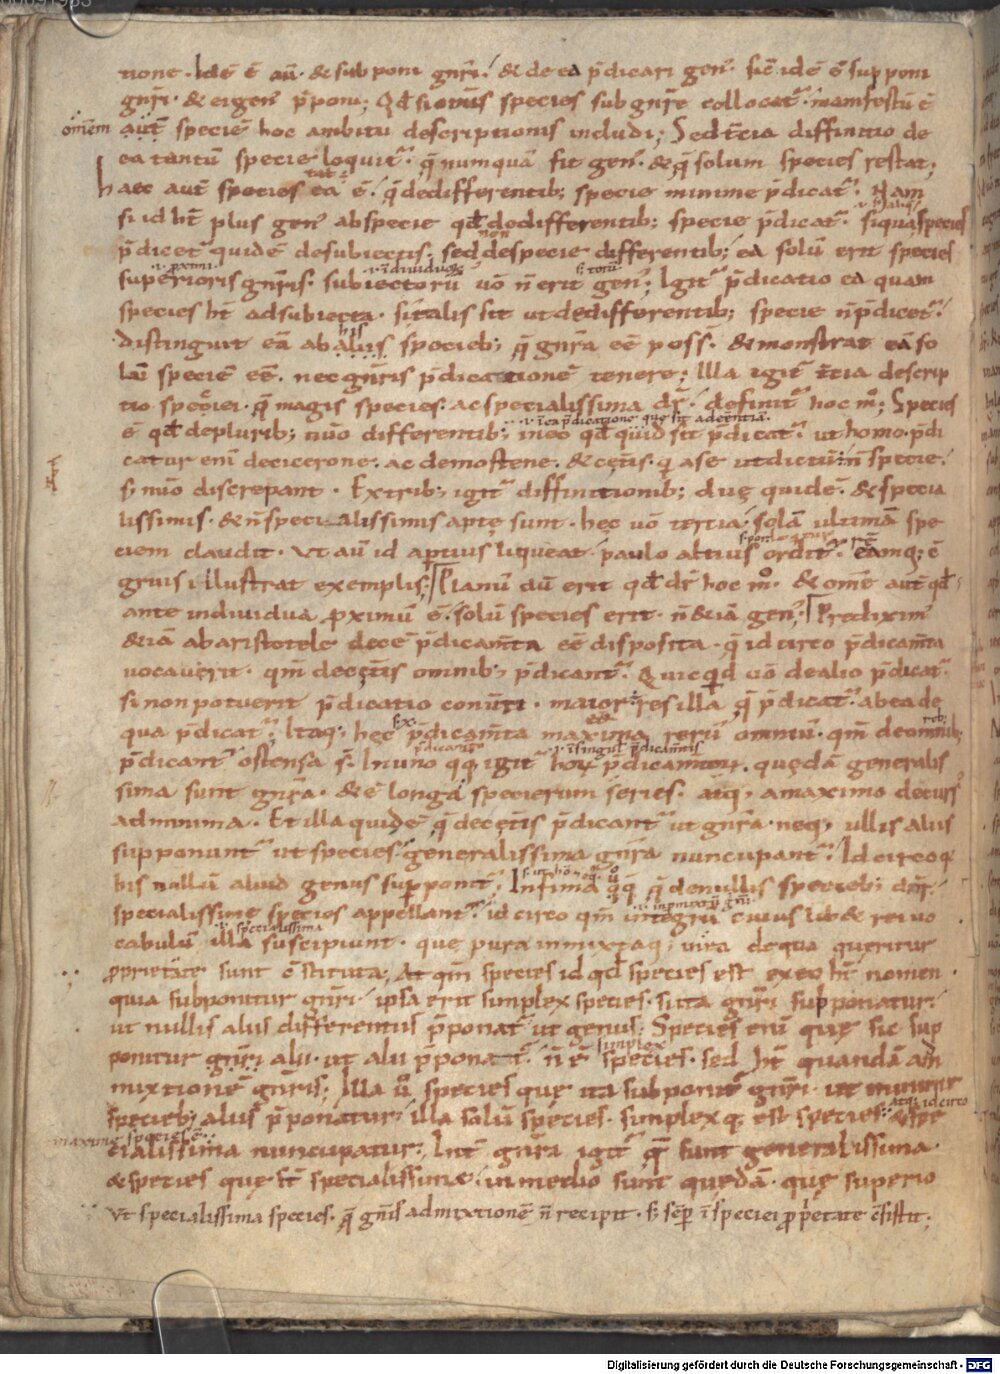 tione. Idē ē aū. & subponi gn̄ri. & de ea p̄dicari genꝰ. sic̄ idē ē supponi
gn̄ri. & ei genꝰ p̄poni; Qđ si om̄is species sub gn̄re collocatꝰ. manifestū ē
omēm aut̄ speciē hoc ambitu descriptionis includi; Sed t̄cia diffinitio de
ea tantū specie loquitꝰ. q̄ numquā fit genꝰ. & q̄ solum species restat;
haec aut̄ species ea ē. q̄ de differentib; specie minime p̄dicatꝰ. Nam
si id hab& plus genꝰ ab specie qđ de differentib; specie p̄dicatꝰ. si qua species
p̄dicetꝰ quidē de subiectis. sed non de specie differentib; ea solū erit species
superioris gn̄ris. subiectorū ūo n̄ erit genꝰ; Igitꝰ p̄dicatio ea quam
species ht̄ ad subiecta. si talis sit ut de differentib; specie n̄ p̄dicetꝰ.
distinguit eā ab aliis specieb; q̄ gn̄ra eē poss̄. & monstrat eā so
lā speciē eē. nec gn̄ris p̄dicationē tenere; Illa igitꝰ t̄cia descrip
tio speciei. q̄ magis species. ac specialissima dr̄. definitꝰ hoc m̊; Species
ē qđ de plurib; nūo differentib; in eo qđ quid sit p̄dicatꝰ. ut homo. p̄di
catur enī de cicerone. ac demostene. & cęt̄is. qui a se ut dictū n̄ specie.
s; nūo discrepant. Ex trib; igitꝰ diffinitionib; duę quidē. & specia
lissimis. & n̄ specialissimis aptę sunt. hec ūo tertia. solā ultimā spe
ciem claudit. Ut aū id apertius liqueat. paulo altius ordiꝰ. eamq; ē
grius illustrat exemplis; Planū aū erit qđ dr̄ hoc m̊. & omē aut̄ qđ
ante individua proximū ē. solū species erit. n̄ & iā genꝰ; Prediximꝰ
& iā ab aristotele decē p̄dicam̄ta eē disposita. q̄ id circo p̄dicam̄ta
vocaverit. qm̄ de cęt̄is omnib; p̄dicantꝰ. Quicquid ūo de alio p̄dicatꝰ
si non potuerit p̄dicatio conūti. maior ē res illa q̄ p̄dicatꝰ. ab ea de
qua p̄dicatꝰ; Itaq; hec p̄dicam̄ta maxima rerū omniū. qm̄ de omnib;
p̄dicantꝰ ostensa s̄. In uno qq; igitꝰ hoꝝ p̄dicamentoꝝ. quędā generalis
sima sunt gn̄ra. & ē longa specierum series. atq; a maximo decursꝰ
ad minima. Et illa quidē q̄ de cęt̄is p̄dicantꝰ ut gn̄ra. neq; ullis aliis
supponuntꝰ ut species. generalissima gn̄ra nuncupantꝰ. Id circo q
his nullū aliud genus superponitꝰ; Infima qq; q̄ de nullis specieb; dn̄r.
specialissime species appellantꝰ. id circo qm̄ integrū cuius lib& rei vo
cabulū illa suscipiunt. que pura inmixtaq; in ea de qua queritur
proprietate sunt c̄stituta; At qm̄ species id qđ species est ex eo ht̄ nomen.
quia subponitur gn̄ri. ipsa erit simplex species. si ita gn̄ri supponatur.
ut nullis aliis differentiis p̄ponatꝰ ut genus; Species enī quę sic sup
ponitur gn̄ri alii. ut alii p̄ponatꝰ. n̄ ē simplex species. sed ht̄ quandā ad
mixtionē gn̄ris; Illa ū species que ita subponitꝰ gn̄ri. ut minime
specieb; aliis p̄ponatur. illa solū species. simplexq; est species. atq; id circo & spe
cialissima nuncupatur; Int̄ gn̄ra igitꝰ q̄ sunt generalissima.
& species quę st̄ specialissimę. in medio sunt quędā. quę superio
Ut specialissima species. q̄ gn̄is admixtionē n̄ recipit. s; sēp ī speciei proprietate c̄sistit.
Digitalisierung gefördert durch die Deutsche Forschungsgemeinschaft - DFG